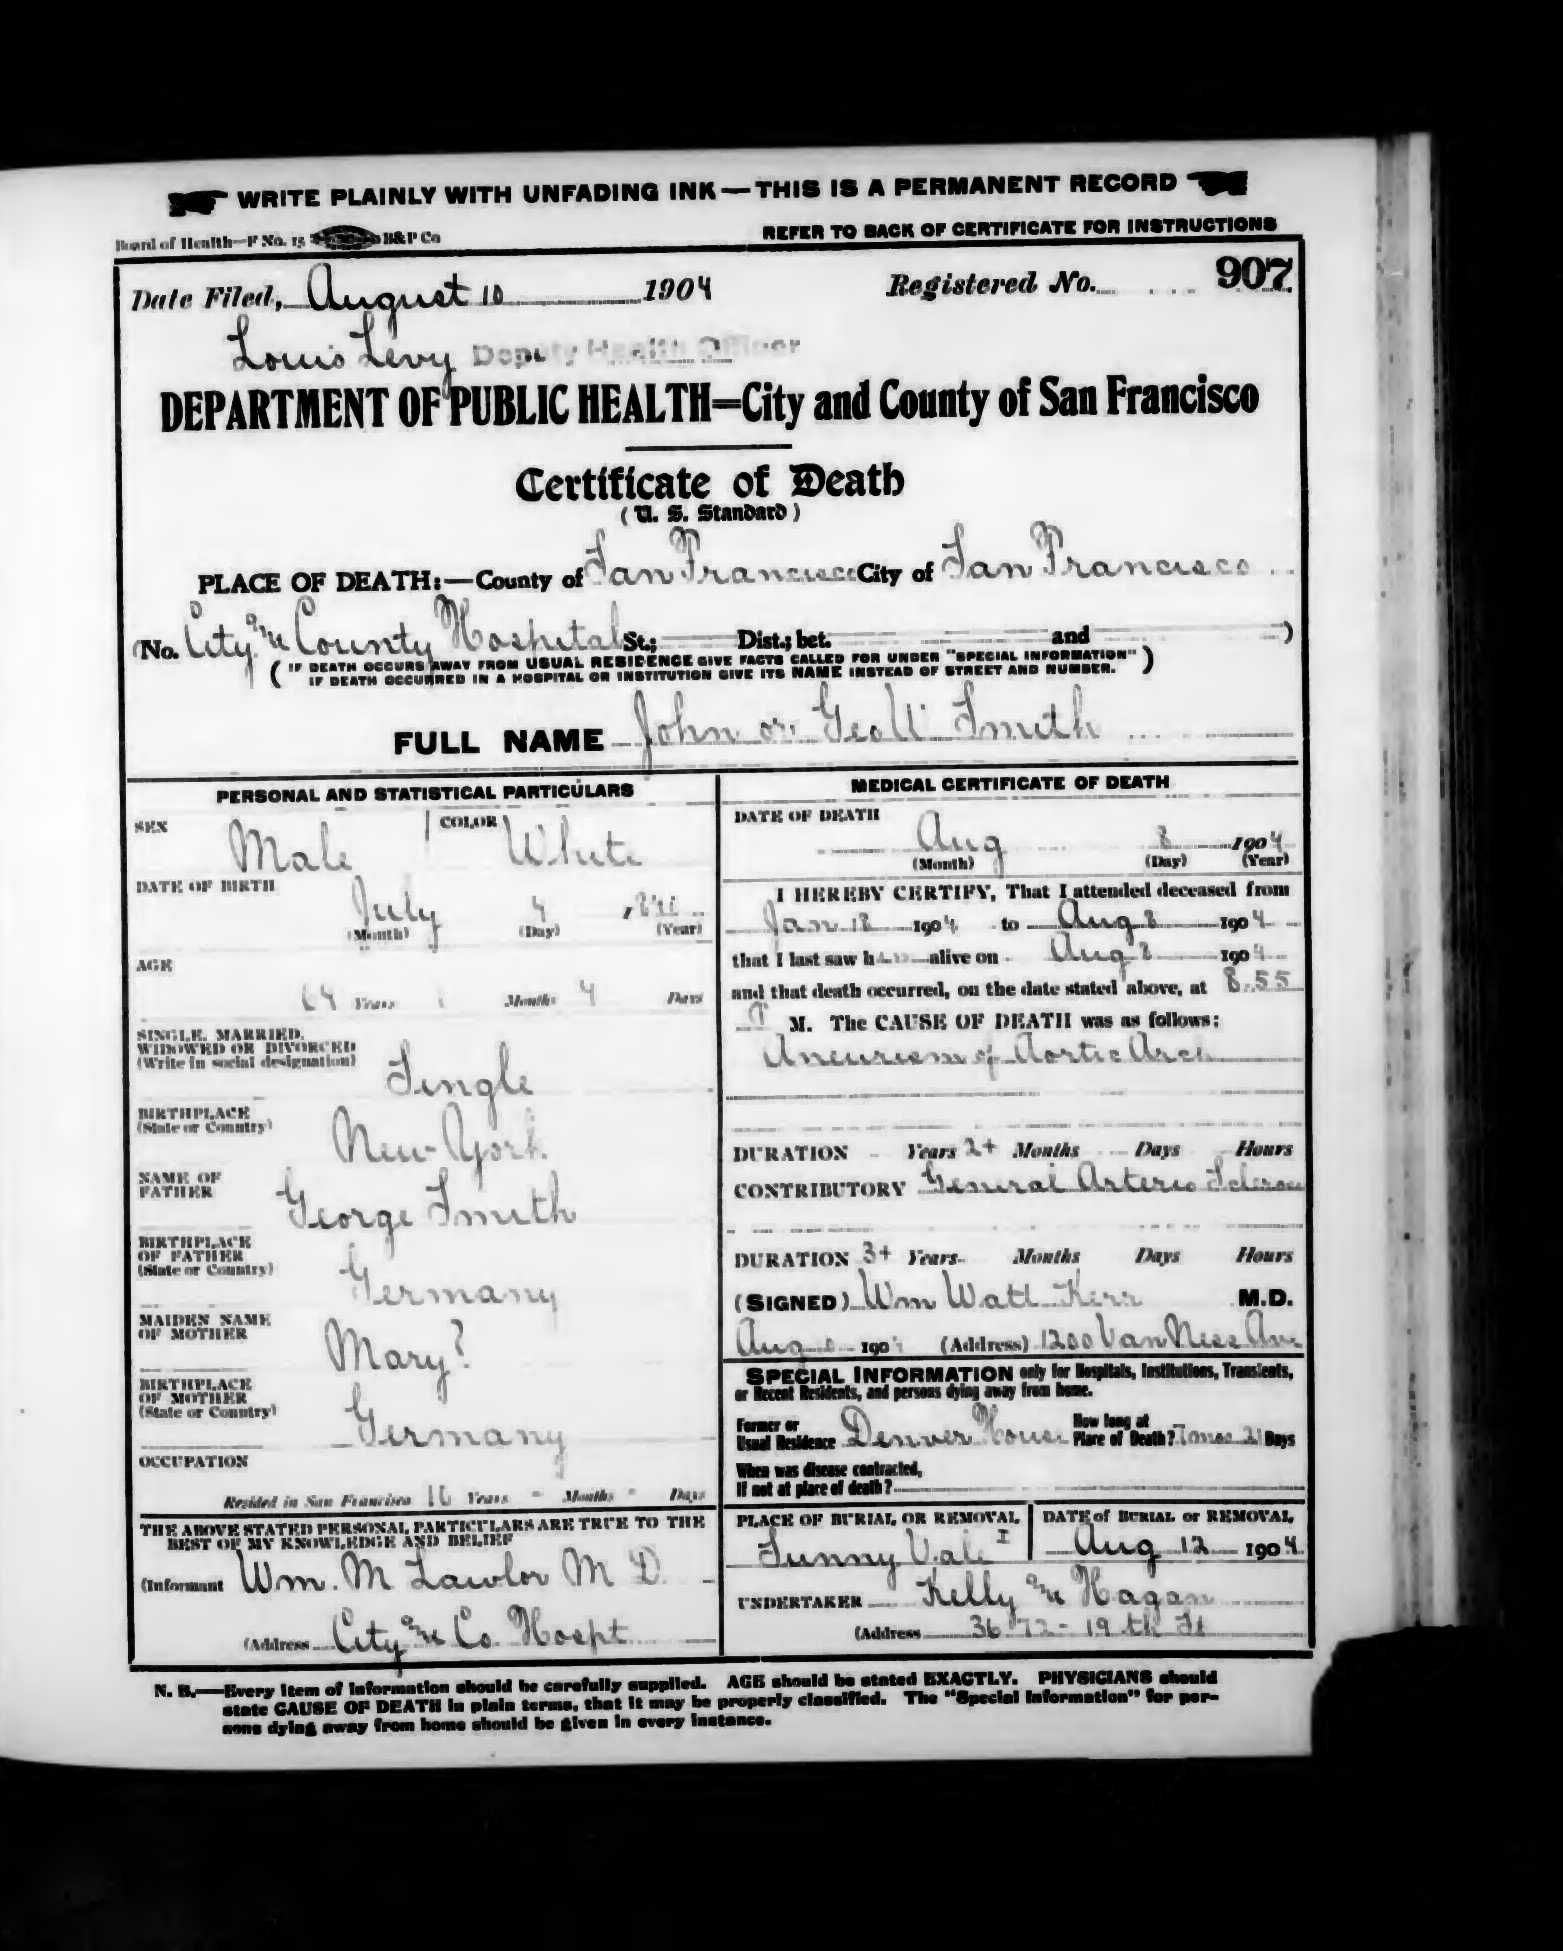 WRITE PLAINLY WITH UNFADING INK—THIS IS A PERMANENT RECORD
Board of Health—F No. 15 B&P Co
REFER TO BACK OF CERTIFICATE FOR INSTRUCTIONS
Date Filed, August 10 1904 Registered No. 907
Louis Levy Deputy Health Officer
DEPARTMENT OF PUBLIC HEALTH=City and County of San Francisco
Certificate of Death
(U. S. Standard)
PLACE OF DEATH:—County of San Francisco City of San Francisco
(No. City and County Hospital St.; Dist.; bet. and )
("IF DEATH OCCURS AWAY FROM USUAL RESIDENCE GIVE FACTS CALLED FOR UNDER "SPECIAL INFORMATION"
IF DEATH OCCURRED IN A HOSPITAL OR INSTITUTION GIVE ITS NAME INSTEAD OF STREET AND NUMBER.)
FULL NAME John or Geo W. Smith
PERSONAL AND STATISTICAL PARTICULARS
SEX Male COLOR White
DATE OF BIRTH July 4
(Month) (Day) (Year)
AGE
64 Years 1 Months 4 Days
SINGLE, MARRIED,
WIDOWED OR DIVORCED
(Write in social designation) Single
BIRTHPLACE
(State or Country) New York
NAME OF
FATHER George Smith
BIRTHPLACE
OF FATHER
(State or Country) Germany
MAIDEN NAME
OF MOTHER Mary?
BIRTHPLACE
OF MOTHER
(State or Country) Germany
OCCUPATION
Resided in San Francisco Years - Months - Days
THE ABOVE STATED PERSONAL PARTICULARS ARE TRUE TO THE
BEST OF MY KNOWLEDGE AND BELIEF
(Informant Wm. M Lawlor M D.
(Address City and Co. Hospt
MEDICAL CERTIFICATE OF DEATH
DATE OF DEATH
Aug 8 1904
(Month) (Day) (Year)
I HEREBY CERTIFY, That I attended deceased from
Jan 18 1904 to Aug 8 1904
that I last saw h im alive on Aug 8 1904
and that death occurred, on the date stated above, at 8.55
P M. The CAUSE OF DEATH was as follows:
Aneurism of Aortic Arch
DURATION - Years 2+ Months Days Hours
CONTRIBUTORY General Arterio Scleros
DURATION 3+ Years Months Days Hours
(SIGNED) Wm Watt Kerr M.D.
Aug 190 (Address) 1200 Van Ness Ave
SPECIAL INFORMATION only for Hospitals, Institutions, Transients,
or Recent Residents, and persons dying away from home.
Former or
Usual Residence Denver House
How long at
Place of Death? 7 mos 21 Days
When was disease contracted,
If not at place of death?
PLACE OF BURIAL OR REMOVAL
Sunny Vale
DATE of BURIAL or REMOVAL
Aug 12 1904
UNDERTAKER Kelly and Hagan
(Address 3672 - 19th St
N. B.—Every item of information should be carefully supplied. AGE should be stated EXACTLY. PHYSICIANS should
state CAUSE OF DEATH in plain terms, that it may be properly classified. The "Special Information" for per-
sons dying away from home should be given in every instance.